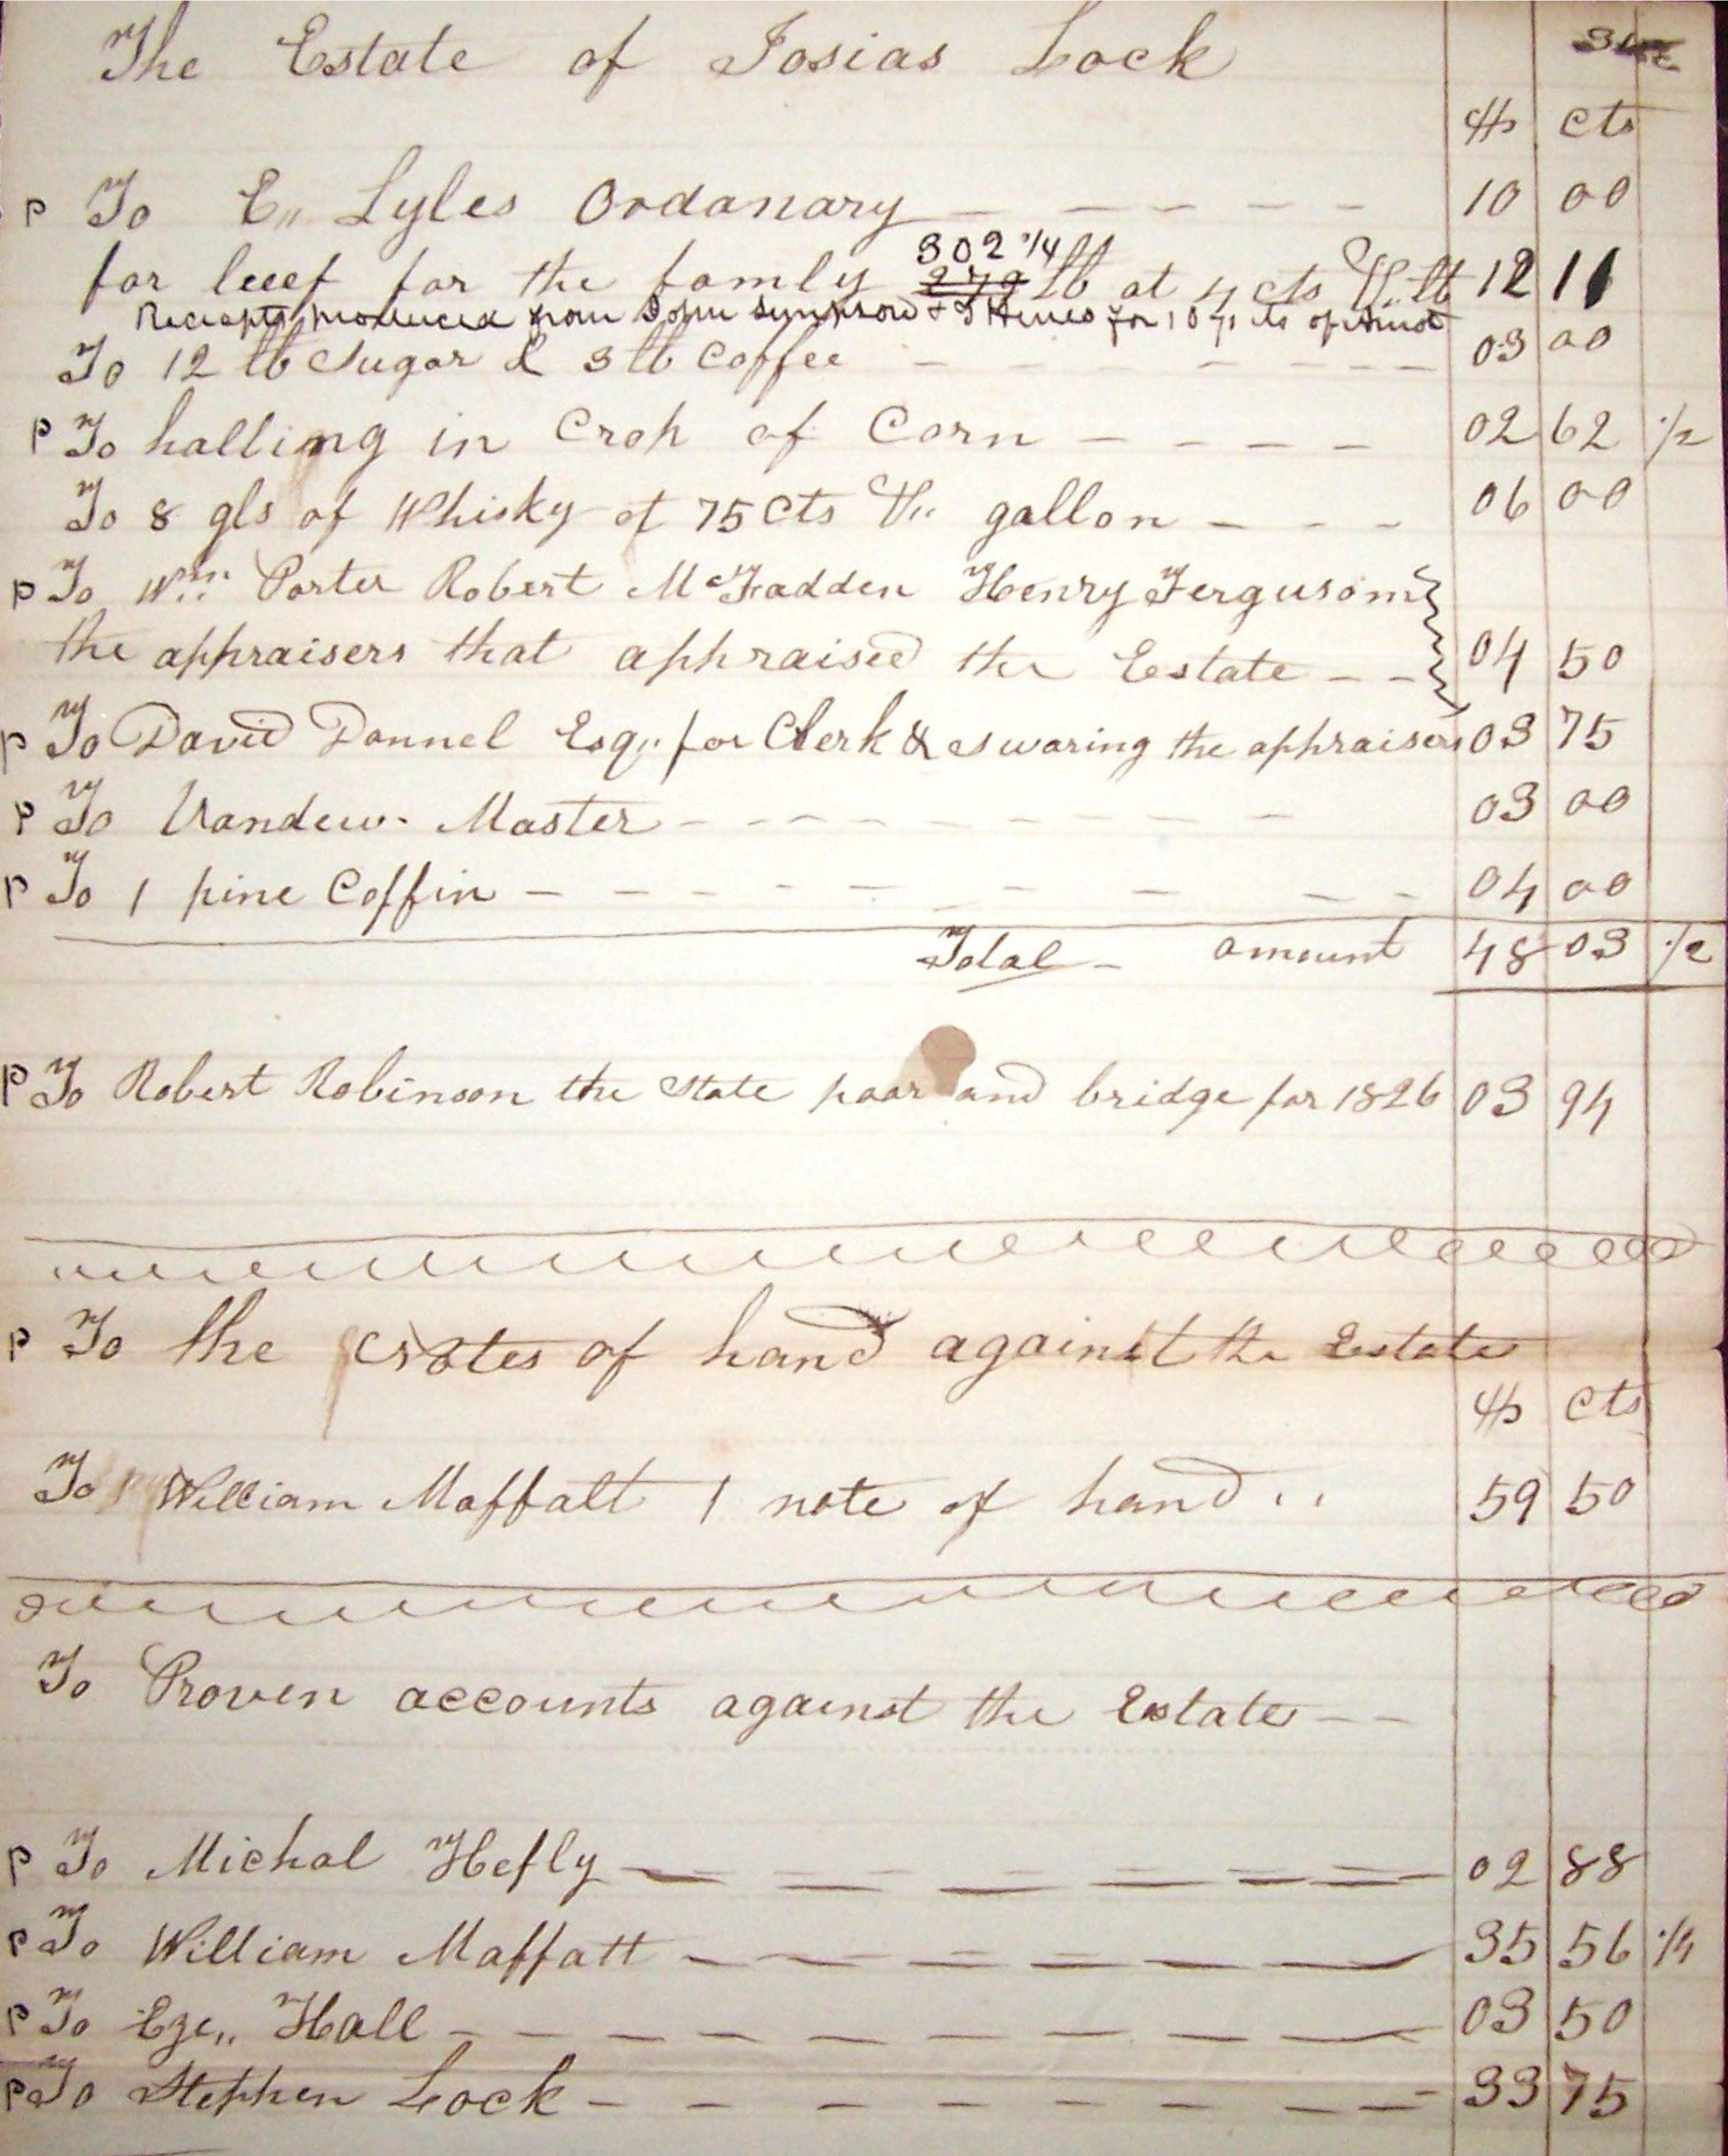 The Estate of Josias Lock
$ cts
P To E,, Lyles Ordanary 10 00
302 1/4
for beef for the famly 279 lb at 4 cts Pr lb 12 11
Reciepts produced from John Sympson & for
To 12 lb Sugar & 3 lb Coffee 03 00
P To halling in Crop of Corn 02 62 1/2
To 8 gls of Whisky at 75 Cts Pr gallon 06 00
P To Wm Porter Robert McFadden Henry Ferguson
the appraisers that appraised the Estate 04 50
P To David Donnel Esq,, for Clerk & swaring the appraisers 03 75
P To Vandew Master 03 00
P To 1 pine Coffin 04 00
Total amount 48 03 1/2
P To Robert Robinson the State poor and bridge for 1826 03 94
P To the Notes of hand against the Estate
$ cts
To William Maffatt 1 note of hand 59 50
To Proven accounts against the Estate
P To Michal Hefly 02 88
P To William Maffatt 35 56 1/4
P To Eze,, Hall 03 50
P To Stephen Lock 33 75